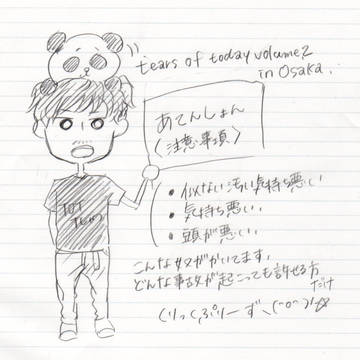 tears of today volume.2
in Osaka.
あてんしょん
〈注意事項〉
・似てない汚い気持ち悪い
・気持ち悪い.
・頭が悪い.
こんな奴がかいてます。
どんな事故が起こっても許せる方
だけ
くりっくぷりーず、